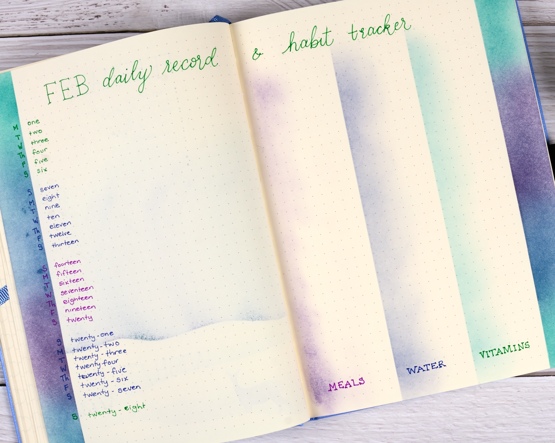 FEB daily record & habit tracker
M one
T two
W three
Th four
F five
S six
S seven
M eight
T nine
W ten
Th eleven
F twelve
S thirteen
S fourteen
M fifteen
T sixteen
W seventeen
Th eighteen
F nineteen
S twenty
S twenty-one
M twenty-two
T twenty-three
W twenty four
Th twenty-five
F twenty-six
S twenty-seven
S twenty-eight
MEALS
WATER
VITAMINS